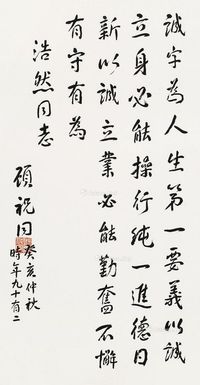 誠字為人生第一要義以誠
立身必能操行純一進德日
新以誠立業必能勤奮不懈
有守有為
浩然同志
顧祝同
癸亥仲秋
時年九十有二